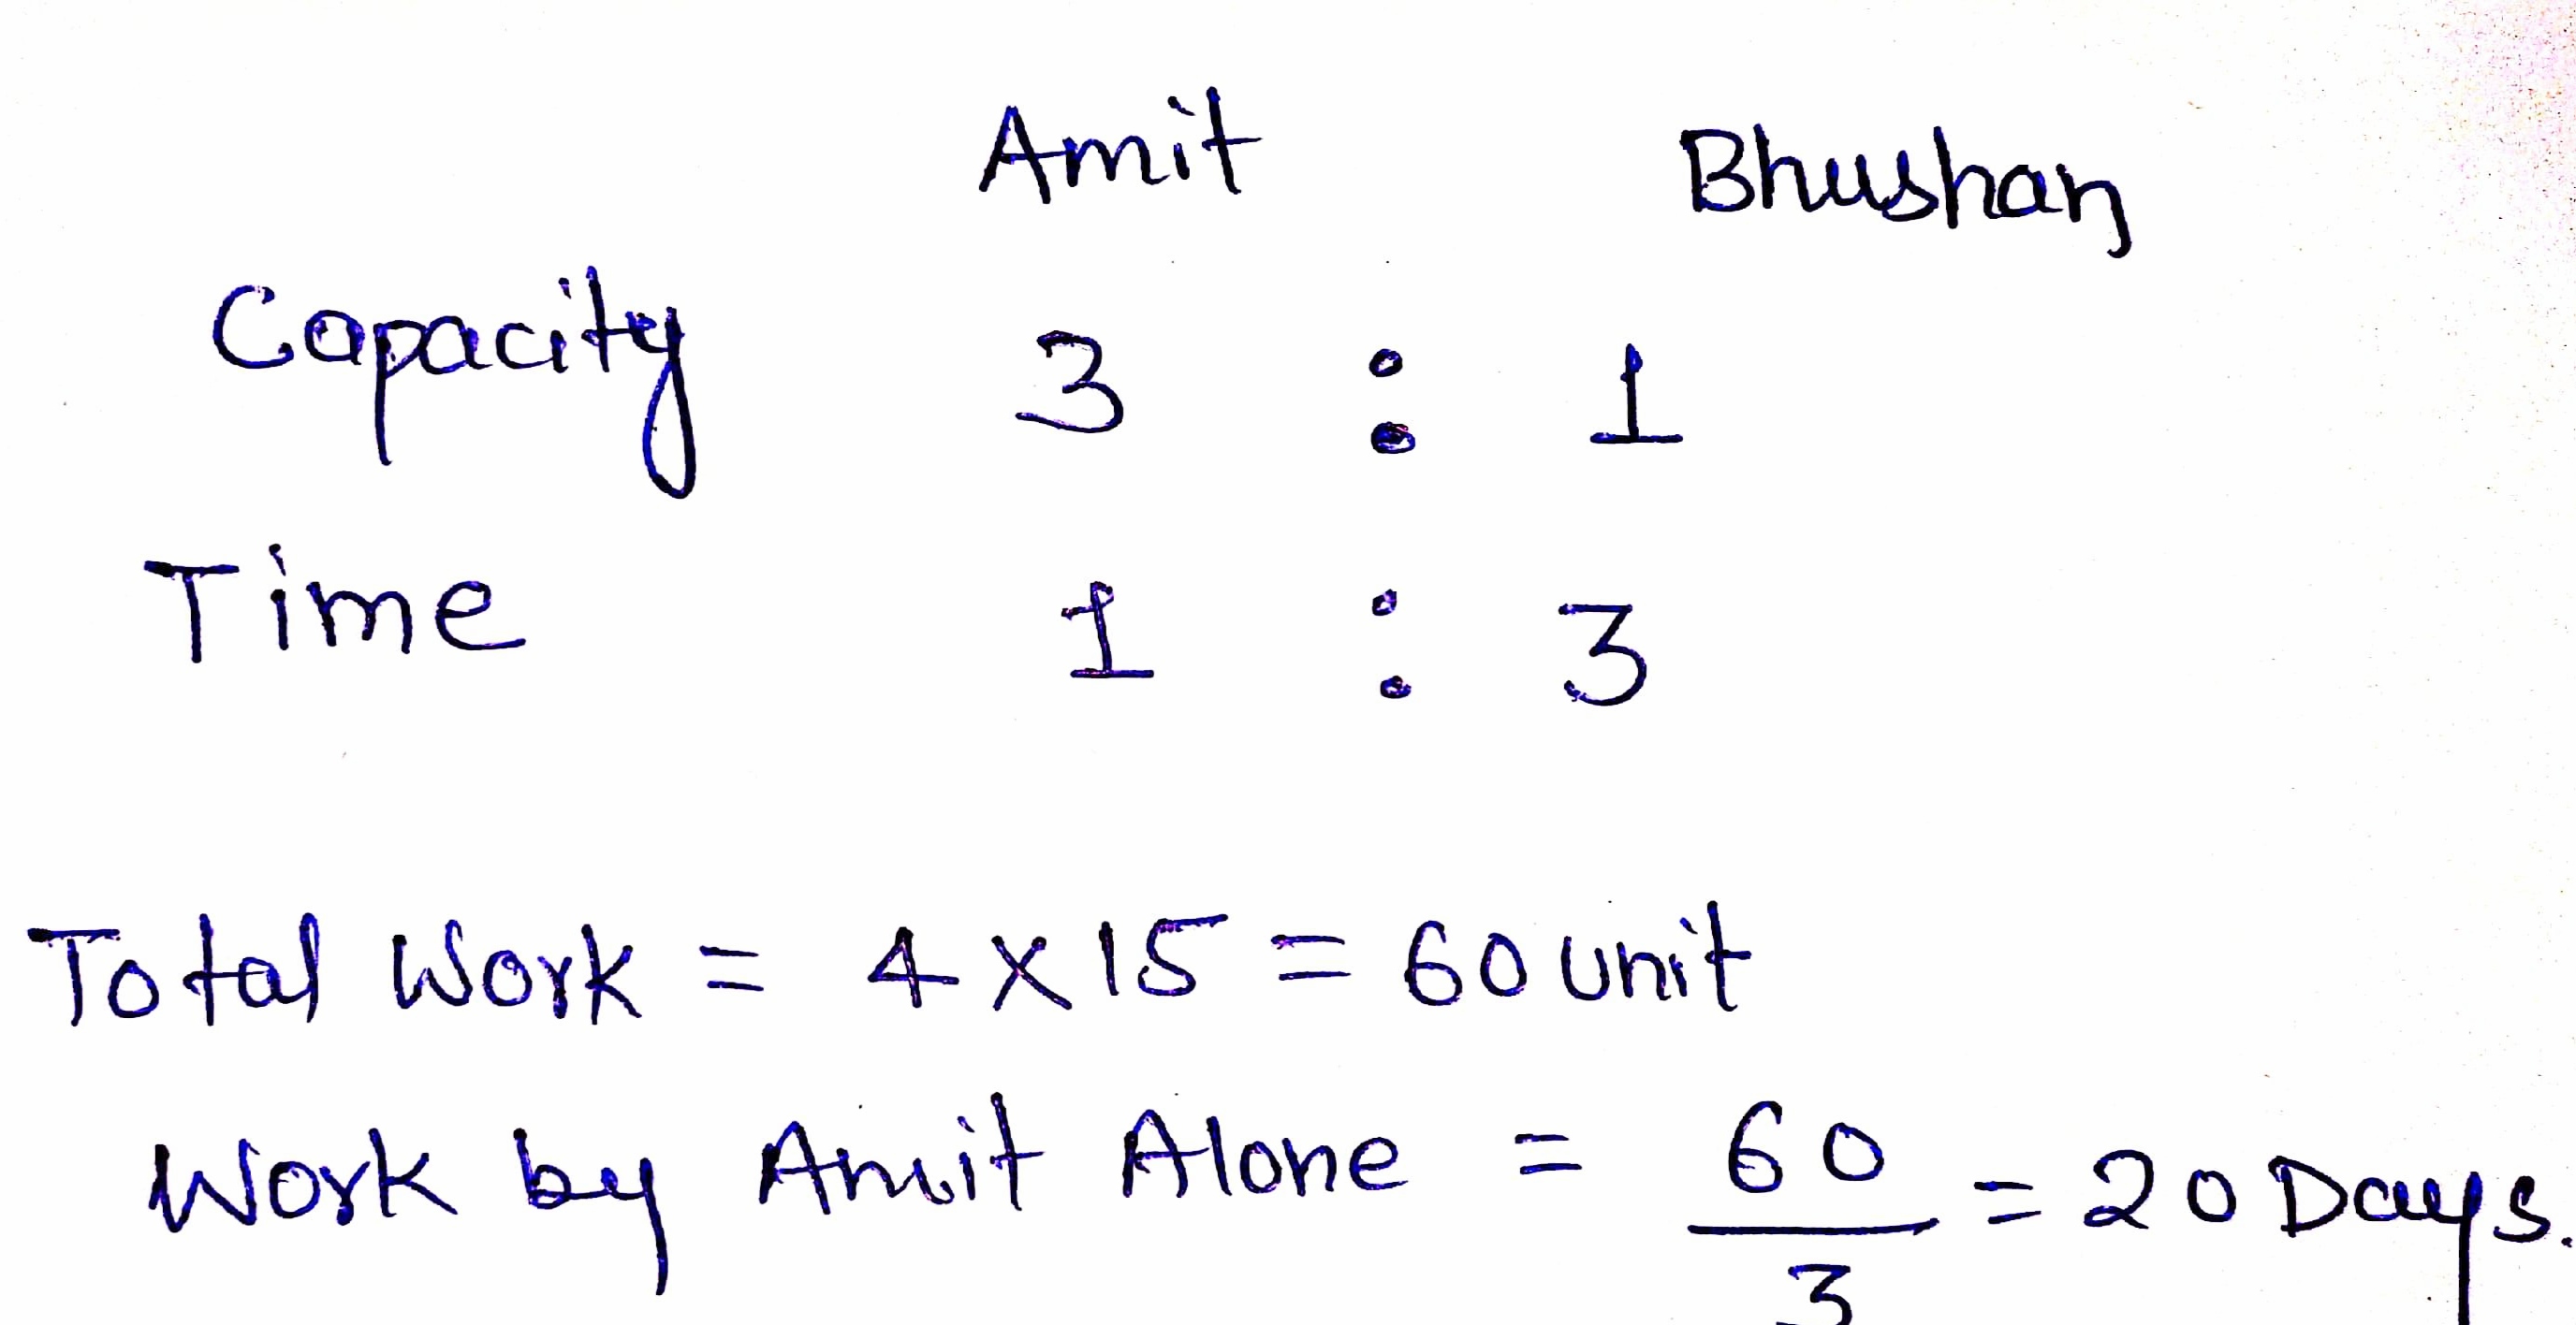 Amit Bhushan
Capacity 3 : 1
Time 1 : 3
Total Work = 4 x 15 = 60 unit
Work by Amit Alone = 60/3 = 20 Days.